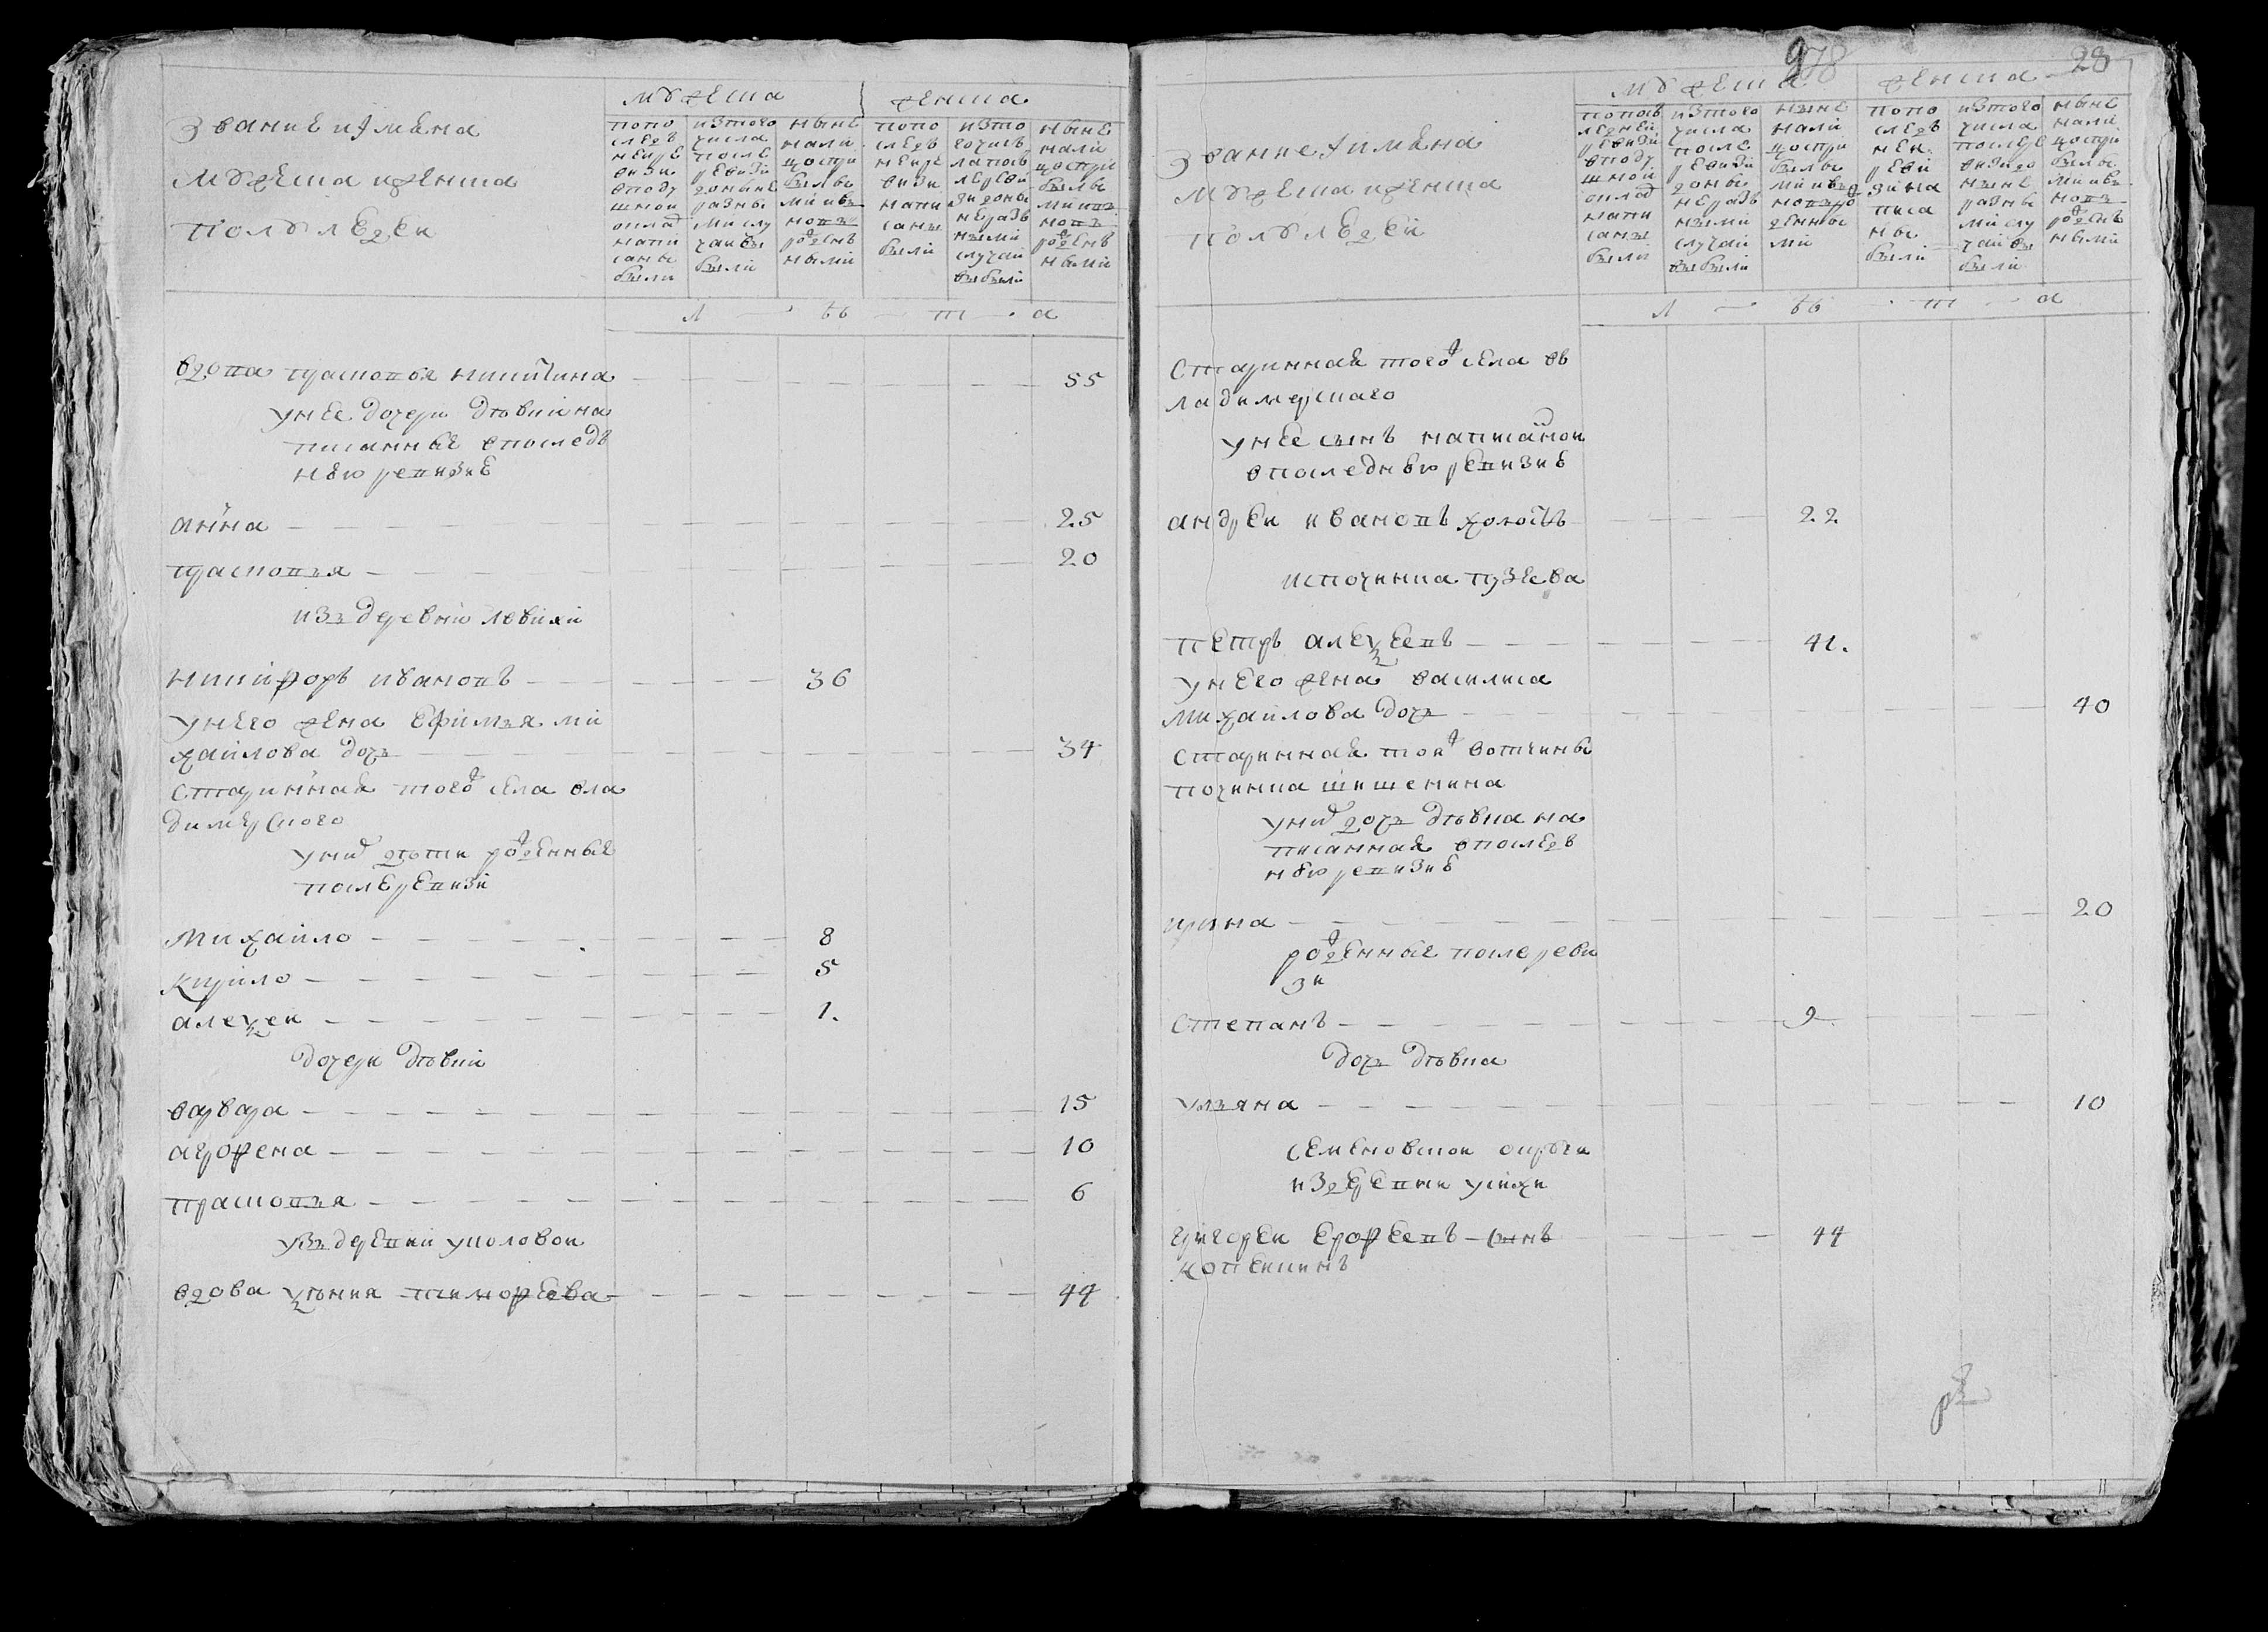 звание и имена
мужеска и женска
полу людей
мужеска
женска
по по
след
ней ре
визи
в поду
шной
оклад
напи
саны
были
из того
числа
после
ревизи
до ныне
разны
ми слу
чаи вы
были
ныне
нали
цо стри
былы
ми и въ
новъ
рожден
ными
по по
след
ней ре
визи
напи
саны
были
из то
го числ
ла посл
ле реви
зи до ны
не разъ
ными
случаи
выбыли
ныне
нали
цо стри
былы
ми и въ
новъ
рожден
ными
л ѣ т а
вдова прасковья никитина 55
у нее дочери девки на
писанные в последъ
нюю ревизию
анна 25
прасковья 20
из деревни левихи
никифоръ ивановъ 36
у него жена ефимья ми
хайлова дочь 34
старинная того ж села вла
димерского
у них дети рожденные
после ревизи
михайло 8
кирило 5
алексеи 1.
дочери девки
варвара 15
агрофена 10
прасковья 6
из деревни уколовои
вдова ксения тимофеева 44
978
28
звание и имена
мужеска и женска
полу людей
мужеска
женска
по посл
ледней
ревизи
в поду
шной
оклад
напи
саны
были
из того
числа
после
ревизи
до ны
не разъ
ными
случаи
выбыли
ныне
нали
цо стри
былы
ми и въ
новь ро
жденны
ми
по по
след
ней
реви
зи на
писа
ны
были
из того
числа
после ре
визи до
ныне
разны
ми слу
чаи вы
были
ныне
нали
цо стри
былы
ми и въ
новъ
рожден
ными
л ѣ т а
старинная того ж села в
ладимерскаго
у нее сынъ написанои
в последнюю ревизию
андреи ивановъ холостъ 22
ис починка пузеева
петръ алексеевъ 41.
у него жена василиса
михайлова дочь 40
старинная тои ж вотчины
починка шишенина
у них дочь девка на
писанная в послед
нюю ревизию
ирина 20
рожденные после реви
зи
степанъ 9
дочь девка
ульяна 10
семеновскои округи
из деревни
григореи ерофеевъ сынъ 44
копеикинъ